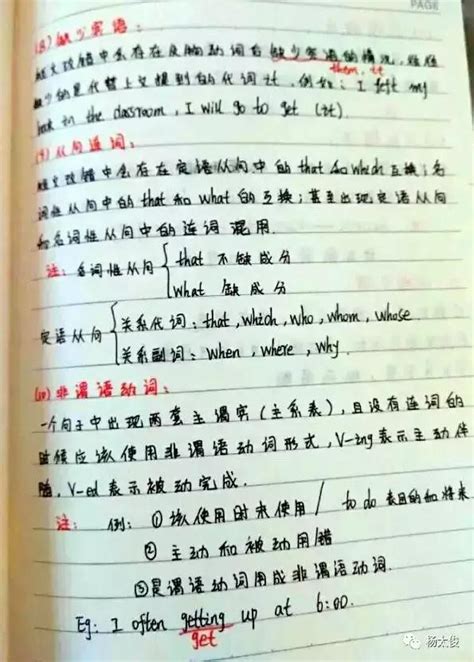 PAGE
(8) 缺少宾语：
短文改错中会存在及物动词后缺少宾语的情况，往往
缺少的是代替上文提到的代词it，例如：I left my
them, it
book in the classroom, I will go to get (it).
(9) 从句连词：
短文改错中会存在定语从句中的that和which互换；名
词性从句中的that和what的互换；甚至出现定语从句
和名词性从句中的连词混用.
注：名词性从句 { that 不缺成分
what 缺成分
定语从句 { 关系代词：that, which, who, whom, whose
关系副词：when, where, why.
(10) 非谓语动词：
一个句子中出现两套主谓宾(主系表)，且没有连词的
时候应该使用非谓语动词形式，V-ing表示主动伴
随，V-ed表示被动完成.
注：例：① 该使用时未使用 / to do 表目的和将来.
② 主动和被动用错
③ 是谓语动词用成非谓语动词.
Eg: I often getting up at 6:00.
get
杨太俊